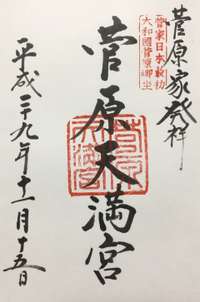 菅原家発祥
菅家日本最初
大和國菅原御生
菅原天満宮
平成二十九年十一月十五日